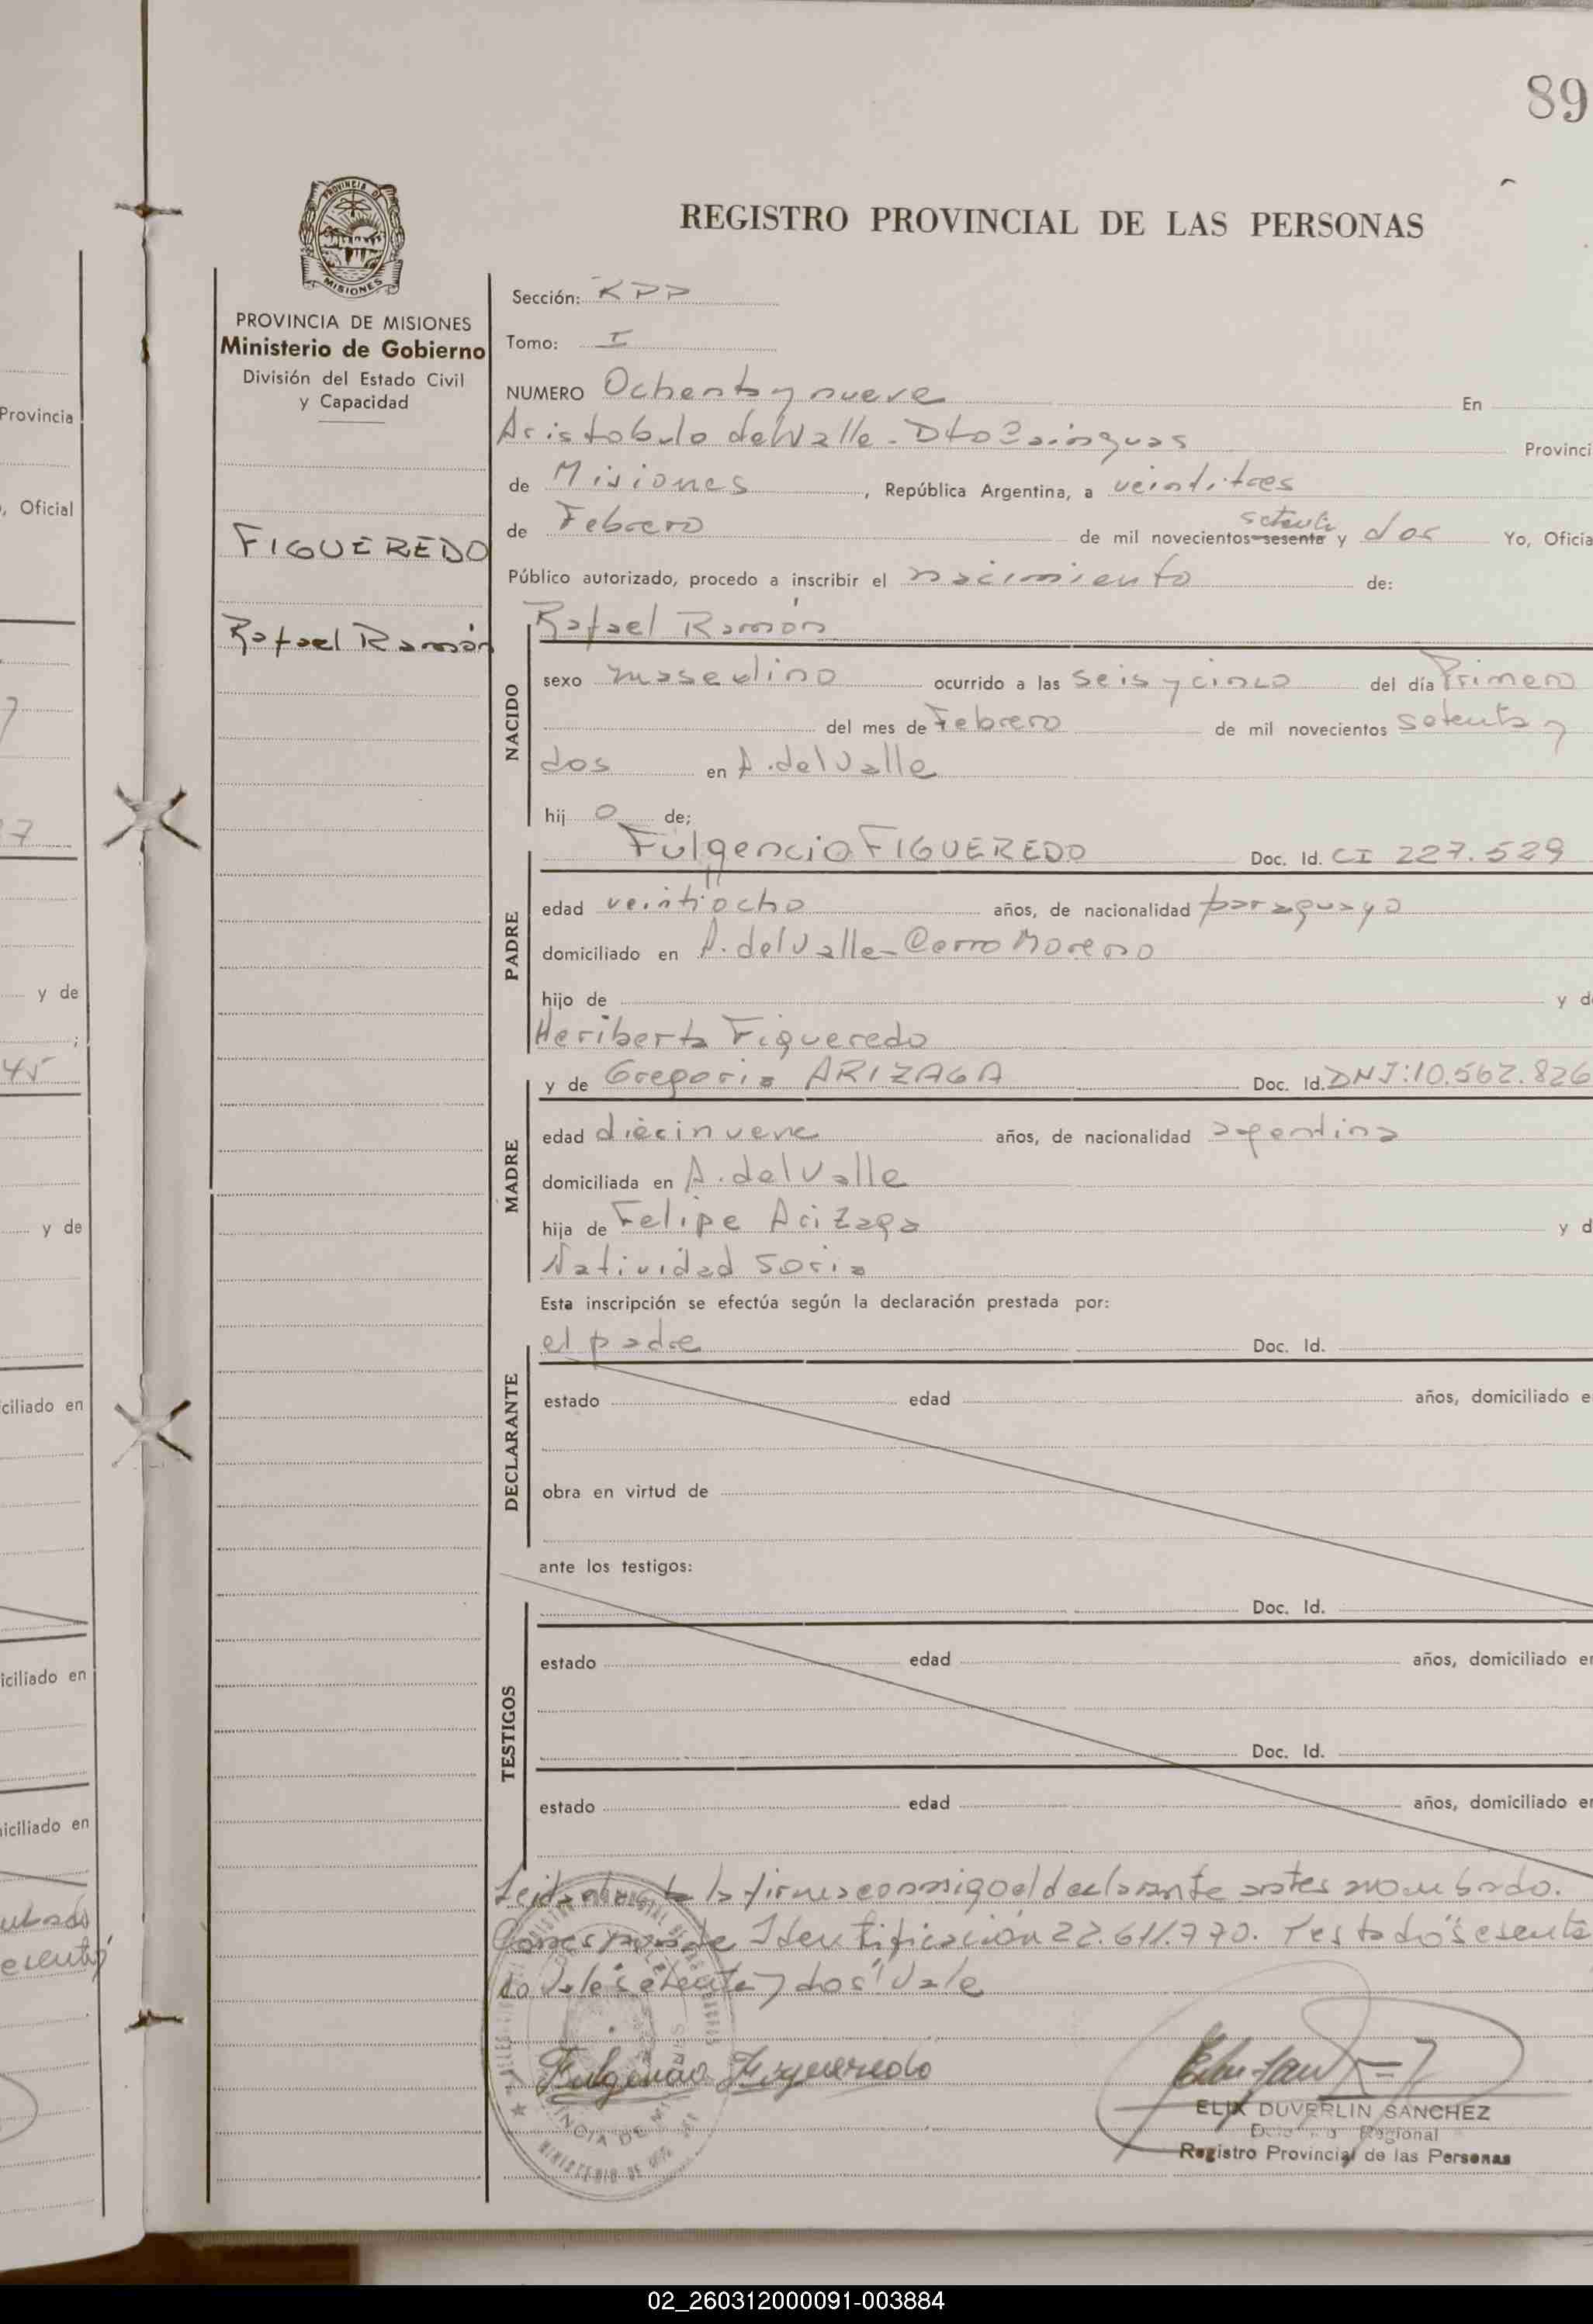 89
REGISTRO PROVINCIAL DE LAS PERSONAS
PROVINCIA DE MISIONES
PROVINCIA DE MISIONES
Ministerio de Gobierno
División del Estado Civil
y Capacidad
FIGUEREDO
Rafael Ramón
Sección:
Tomo: I
NUMERO Ochenta y nueve En
Aristobulo del Valle - Dto Cainguas Provinci
de Misiones, República Argentina, a veintitres
de Febrero de mil novecientos sesenta setenta y dos Yo, Oficia
Público autorizado, procedo a inscribir el nacimiento de:
NACIDO
Rafael Ramón
sexo masculino ocurrido a las seis y cinco del día Primero
del mes de Febrero de mil novecientos setenta y
dos en A. del Valle
hij o de;
PADRE
Fulgencio FIGUEREDO Doc. Id. CI 227.529
edad veintiocho años, de nacionalidad paraguaya
domiciliado en A. del Valle - Cerro Moreno
hijo de y d
Heriberto Figueredo
MADRE
y de Gregoria ARIZAGA Doc. Id. DNI:10.562.826
edad diecinueve años, de nacionalidad argentina
domiciliada en A. del Valle
hija de Felipe Arizaga y d
Natividad Soria
Esta inscripción se efectúa según la declaración prestada por:
DECLARANTE
el padre Doc. Id.
estado edad años, domiciliado e
obra en virtud de
ante los testigos:
TESTIGOS
Doc. Id.
estado edad años, domiciliado en
Doc. Id.
estado edad años, domiciliado en
Leida el acta la firma conmigo el declarante antes nombrado.
Corresponde Identificación 22.611.770. Testado "sesenta
no vale "setenta y dos" Vale
Fulgencio Figueredo
ELIX DUVERLIN SANCHEZ
Regional
Registro Provincial de las Personas
Provincia
, Oficial
7
7
y de
;
45
y de
ciliado en
iciliado en
iciliado en
02_260312000091-003884